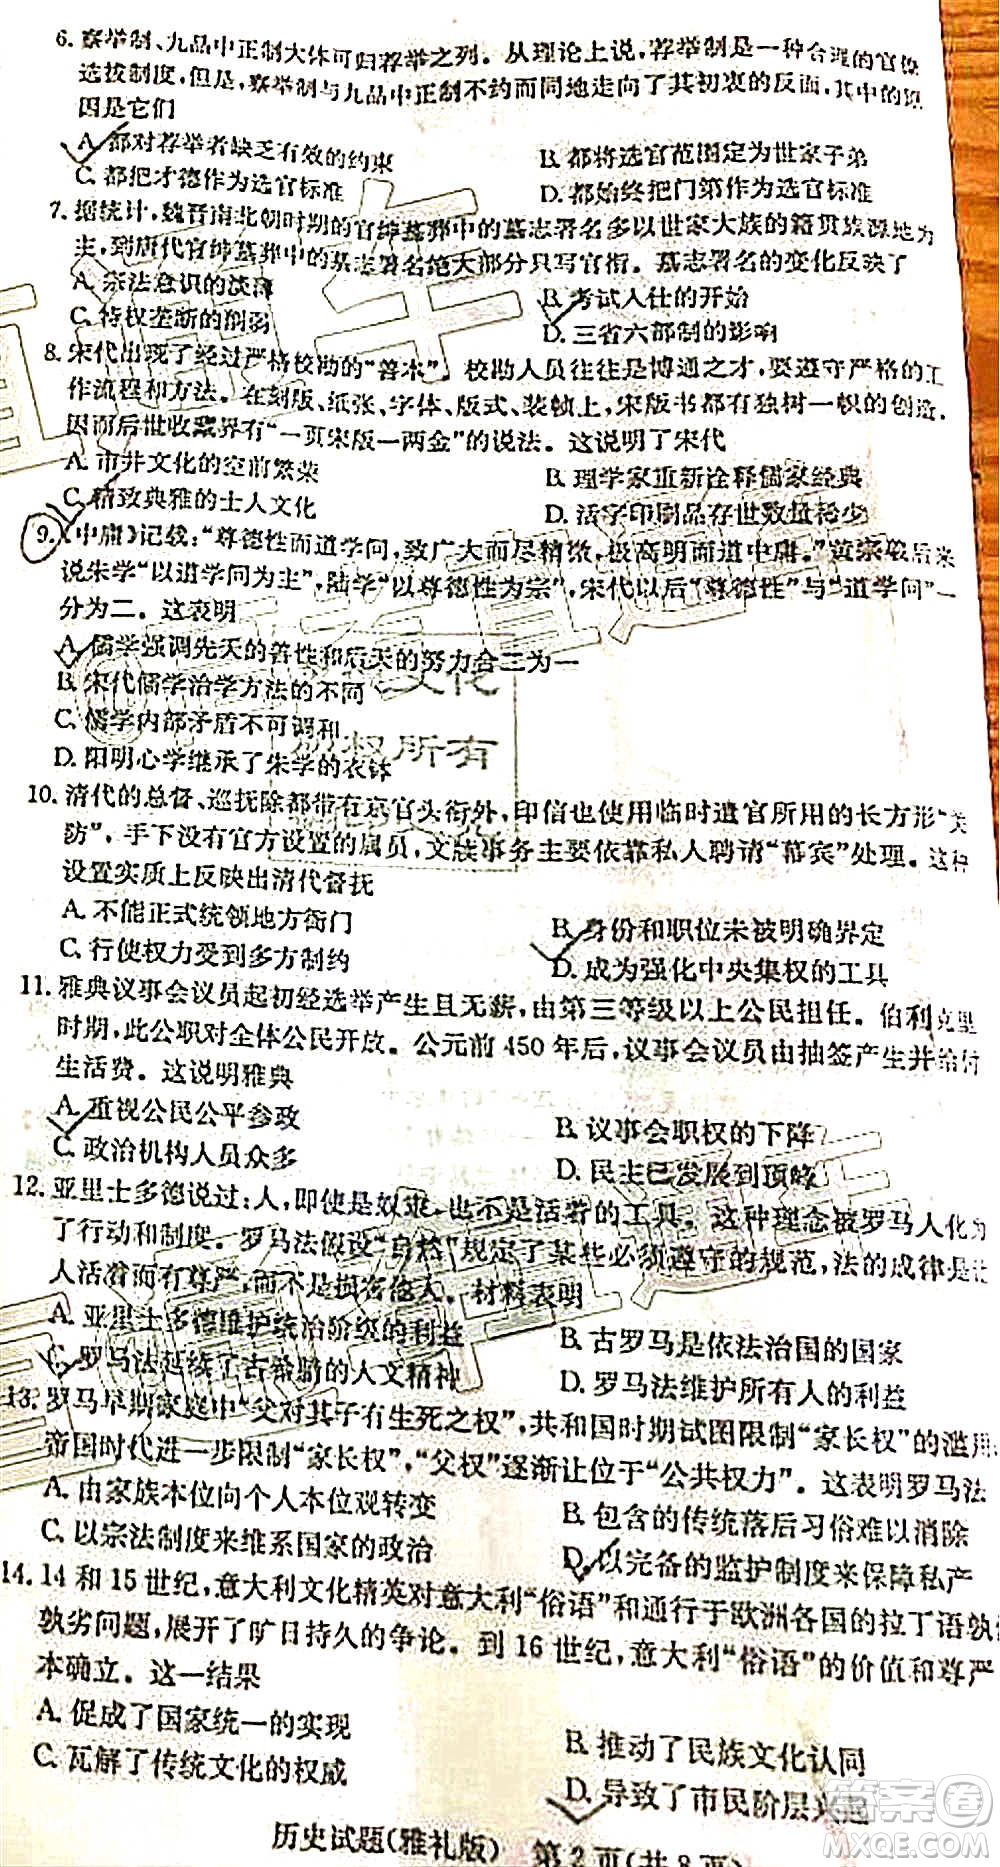 6. 察举制、九品中正制大体可归荐举之列。从理论上说,荐举制是一种合理的官僚
选拔制度,但是,察举制与九品中正制不约而同地走向了其初衷的反面,其中的原
因是它们
A. 都对荐举者缺乏有效的约束
B. 都将选官范围定为世家子弟
C. 都把才德作为选官标准
D. 都始终把门第作为选官标准
7. 据统计,魏晋南北朝时期的官绅墓葬中的墓志署名多以世家大族的籍贯族源地为
主,到唐代官绅墓葬中的墓志署名绝大部分只写官衔。墓志署名的变化反映了
A. 宗法意识的淡薄
B. 考试入仕的开始
C. 特权垄断的削弱
D. 三省六部制的影响
8. 宋代出现了经过严格校勘的“善本”,校勘人员往往是博通之才,要遵守严格的工
作流程和方法。在刻版、纸张、字体、版式、装帧上,宋版书都有独树一帜的创造,
因而后世收藏界有“一页宋版一两金”的说法。这说明了宋代
A. 市井文化的空前繁荣
B. 理学家重新诠释儒家经典
C. 精致典雅的士人文化
D. 活字印刷品存世数量稀少
9.《中庸》记载:“尊德性而道学问,致广大而尽精微,极高明而道中庸。”黄宗羲后来
说朱学“以道学问为主”,陆学“以尊德性为宗”,宋代以后“尊德性”与“道学问”一
分为二。这表明
A. 儒学强调先天的善性和后天的努力合二为一
B. 宋代儒学治学方法的不同
C. 儒学内部矛盾不可调和
D. 阳明心学继承了朱学的衣钵
版权所有
10. 清代的总督、巡抚除都带有京官头衔外,印信也使用临时遣官所用的长方形“关
防”,手下没有官方设置的属员,文牍事务主要依靠私人聘请“幕宾”处理。这种
设置实质上反映出清代督抚
A. 不能正式统领地方衙门
B. 身份和职位未被明确界定
C. 行使权力受到多方制约
D. 成为强化中央集权的工具
11. 雅典议事会议员起初经选举产生且无薪,由第三等级以上公民担任。伯利克里
时期,此公职对全体公民开放。公元前 450 年后,议事会议员由抽签产生并给付
生活费。这说明雅典
A. 重视公民公平参政
B. 议事会职权的下降
C. 政治机构人员众多
D. 民主已发展到顶峰
12. 亚里士多德说过:人,即使是奴隶,也不是活着的工具。这种理念被罗马人化为
了行动和制度。罗马法假设“自然”规定了某些必须遵守的规范,法的戒律是让
人活着而有尊严,而不是损害他人。材料表明
A. 亚里士多德维护统治阶级的利益
B. 古罗马是依法治国的国家
C. 罗马法延续了古希腊的人文精神
D. 罗马法维护所有人的利益
13. 罗马早期家庭中“父对其子有生死之权”,共和国时期试图限制“家长权”的滥用,
帝国时代进一步限制“家长权”,“父权”逐渐让位于“公共权力”。这表明罗马法
A. 由家族本位向个人本位观转变
B. 包含的传统落后习俗难以消除
C. 以宗法制度来维系国家的政治
D. 以完备的监护制度来保障私产
14. 14 和 15 世纪,意大利文化精英对意大利“俗语”和通行于欧洲各国的拉丁语孰优
孰劣问题,展开了旷日持久的争论。到 16 世纪,意大利“俗语”的价值和尊严
本确立。这一结果
A. 促成了国家统一的实现
B. 推动了民族文化认同
C. 瓦解了传统文化的权威
D. 导致了市民阶层兴起
历史试题(雅礼版) 第 2 页(共 8 页)
答案卷
MXQE.COM